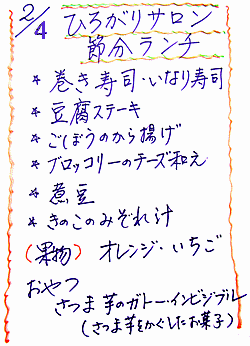 2/4 ひろがりサロン
節分ランチ
* 巻き寿司・いなり寿司
* 豆腐ステーキ
* ごぼうのから揚げ
* ブロッコリーのチーズ和え
* 煮豆
* きのこのみぞれ汁
(果物) オレンジ・いちご
おやつ
さつま芋のガトーインビジブル
(さつま芋をかくしたお菓子)